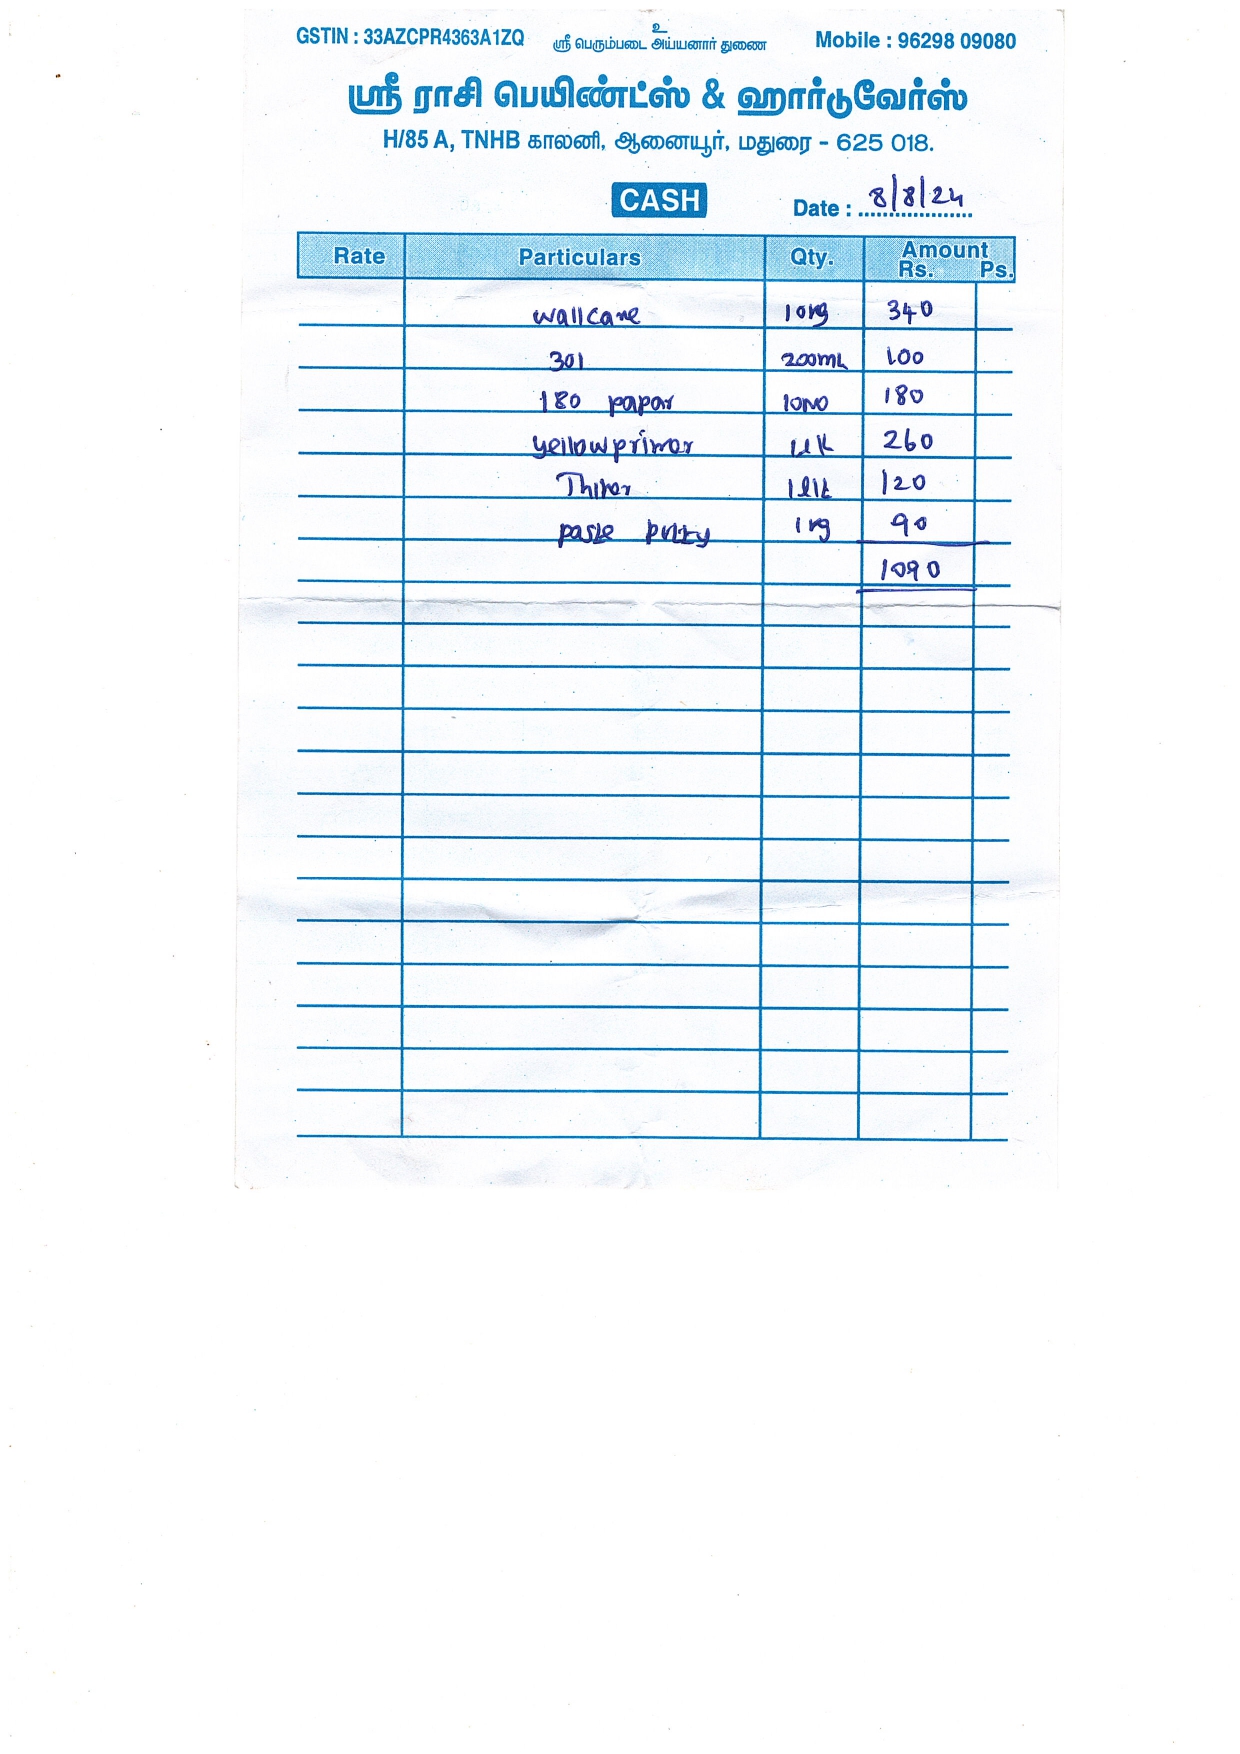 GSTIN : 33AZCPR4363A1ZQ உ Mobile : 96298 09080
ஸ்ரீ பெரும்படை அய்யனார் துணை
ஸ்ரீ ராசி பெயிண்ட்ஸ் & ஹார்டுவேர்ஸ்
H/85 A, TNHB காலனி, ஆனையூர், மதுரை - 625 018.
CASH Date : 8/8/24
Rate Particulars Qty. Amount Rs. Ps.
wallcare 10kg 340
301 200mL 100
180 papar 10No 180
yellow primer 1Lit 260
Thiner 1lit 120
paste putty 1kg 90
1090